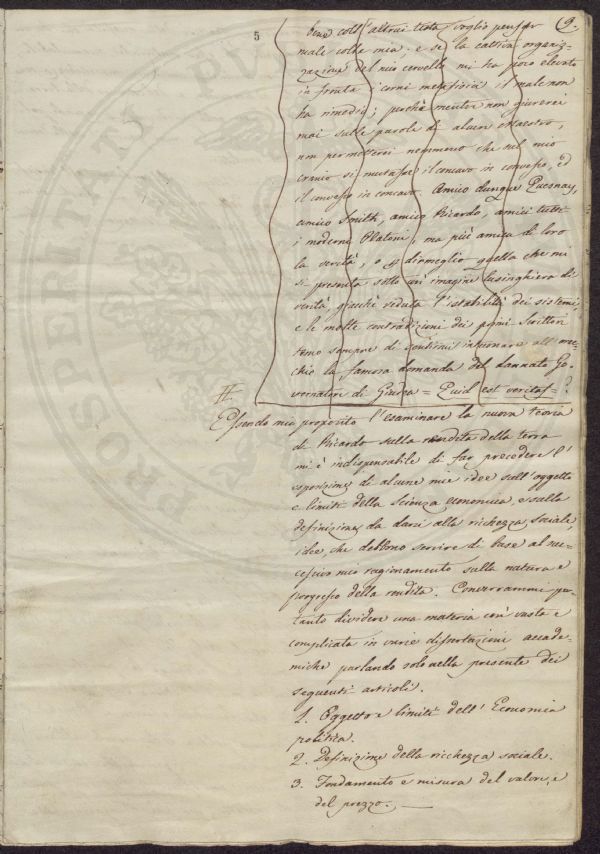 9.
5
bene coll'altrui testa voglio pensar
male colla mia. e se la cattiva organiz-
zazione del mio cervello mi ha poco elevato
in fronte i corni metafisici il male non
ha rimedio; perchè mentre non giurerei
mai sulle parole di alcun Maestro,
non permetterei nemmeno che nel mio
cranio si mutasse il concavo in convesso, ed
il convesso in concavo. Amico dunque Quesnay,
amico Smith, amico Ricardo, amici tutti
i moderni Platoni, ma più amica di loro
la verità, o dirò meglio quella che mi
si presenta sotto un' imagine lusinghiera di
verità, giacchè veduta l'istabilità dei sistemi,
e le molte contradizioni dei primi Scrittori
temo sempre di sentirmi intuonare all'orec-
chio la famosa domanda del dannato Go-
vernatore di Giudea = Quid est veritas = ?
Essendo mio proposito l'esaminare la nuova teoria
di Ricardo sulla rendita della terra
mi è indispensabile di far precedere l'
esposizione di alcune mie idee sull'oggetto
e limiti della Scienza economica, e sulla
definizione da darsi alla richezza sociale,
idee, che debbono servire di base al suc-
cessivo mio ragionamento sulla natura e
progresso della rendita. Converrammi per-
tanto dividere una materia così vasta e
complicata in varie dissertazioni accade-
miche parlando solo nella presente dei
seguenti articoli.
1. Oggetto e limiti dell' Economia
politica.
2. Definizione della ricchezza sociale.
3. Fondamento e misura del valore, e
del prezzo. —